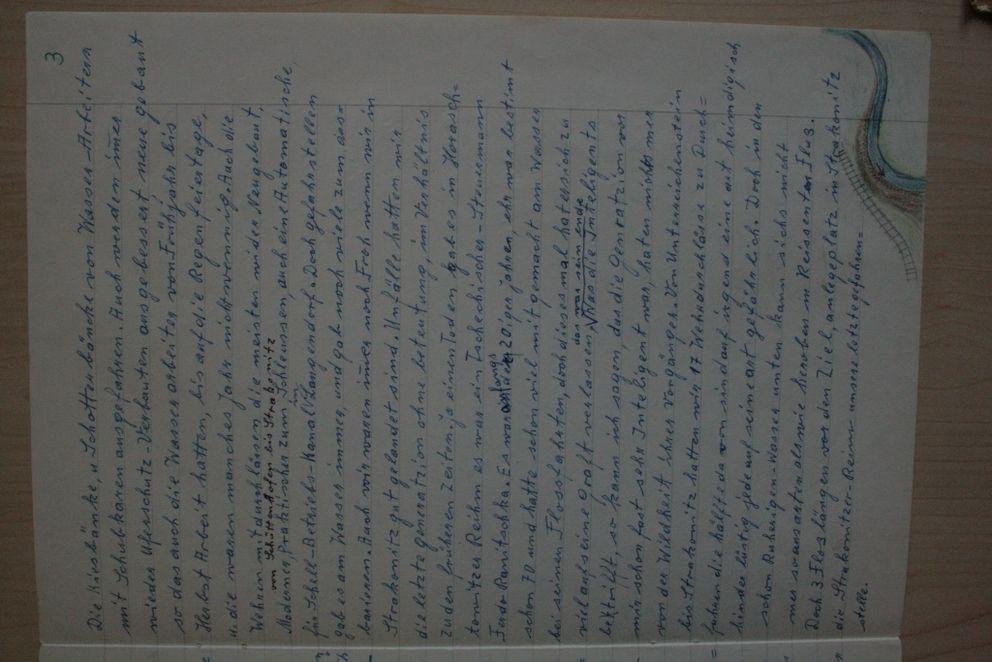 3
Die Kiesbänke, u Schotterbänke von Wasser-Arbeitern
mit Schubkaren ausgefahren. Auch werden immer
wieder Uferschutz-Verbauten ausgebessert neue gebaut
so das auch die Wasserarbeiter von Frühjahr bis
Herbst Arbeit hatten, bis auf die Regenfeiertage,
u. die waren manches Jahr nicht wennig. Auch die
Wehren mit durchlässen die meisten wieder Neugebaut,
von Schüttenhofen bis Strakonitz
Moderner, Praktischer zum Schleussen auch eine Automatische,
im
für Schell-Betriebs-Kanal Langendorf. Doch gefahrstellen
gab es am Wasser immer, und gab noch viele zum aus=
bauieren. Auch wir waren immer noch Froh wenn wir in
Strakonitz gut gelandet sind. Unfälle hatten wir
die letzte generation ohne beteutung, im Verhältnis
zu den früheren zeiten. ja einen Toden gab es in Horasch=
towitzer Reihm es war ein Tschechischer-Steuermann
Franta Ranitschka. Es war anfangs 20iger jahren, ehr war bestimt
schon 70 und hatte schon viel mitgemacht am Wasser
bei seinen Flossfahrten, doch diesesmal hat er sich zu
das war sein ende
viel auf seine Kraft verlassen Was die Inteligents
bettrifft, so kann ich sagen, das die Genration vor
mir schon fast sehr Inteligent war, hatten nichts mer
von der Wildheit ihrer Vorgänger. Von Unterreichenstein
bis Strakonitz hatten wir 17 Wehrdurchlässe zu Durch=
fahren die hälfte davon sind auf irgend eine art heimdigisch
hinderlistig jede auf seine art gefährlich. Doch in den
schon Ruheigen-Wasser unten kann sichs nicht
mer so ausarten als wie hieroben in Reissenten Fluss.
Doch 3 Floslängen vor dem Ziel, anlegeplatz in Strakonitz
die Strakonitzer-Reim unsere letzte gefahren=
stelle.